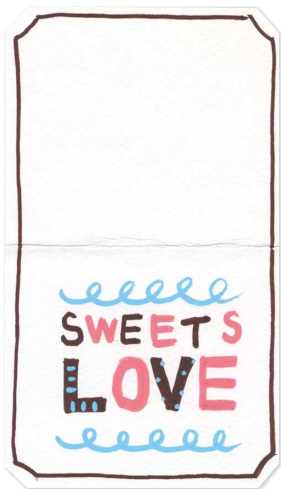 SWEETS
LOVE